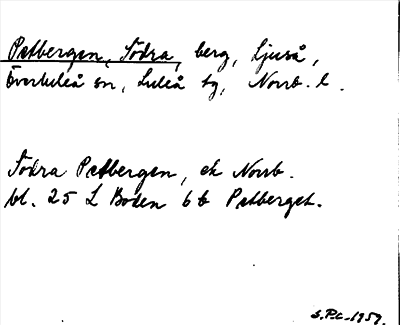 Petbergen, Södra, berg, Ljuså,
Överluleå sn, Luleå tg, Norrb. l.
Södra Petbergen, ek Norrb.
bl. 25 L Boden 6 b Petberget.
S.P.L. 1959.